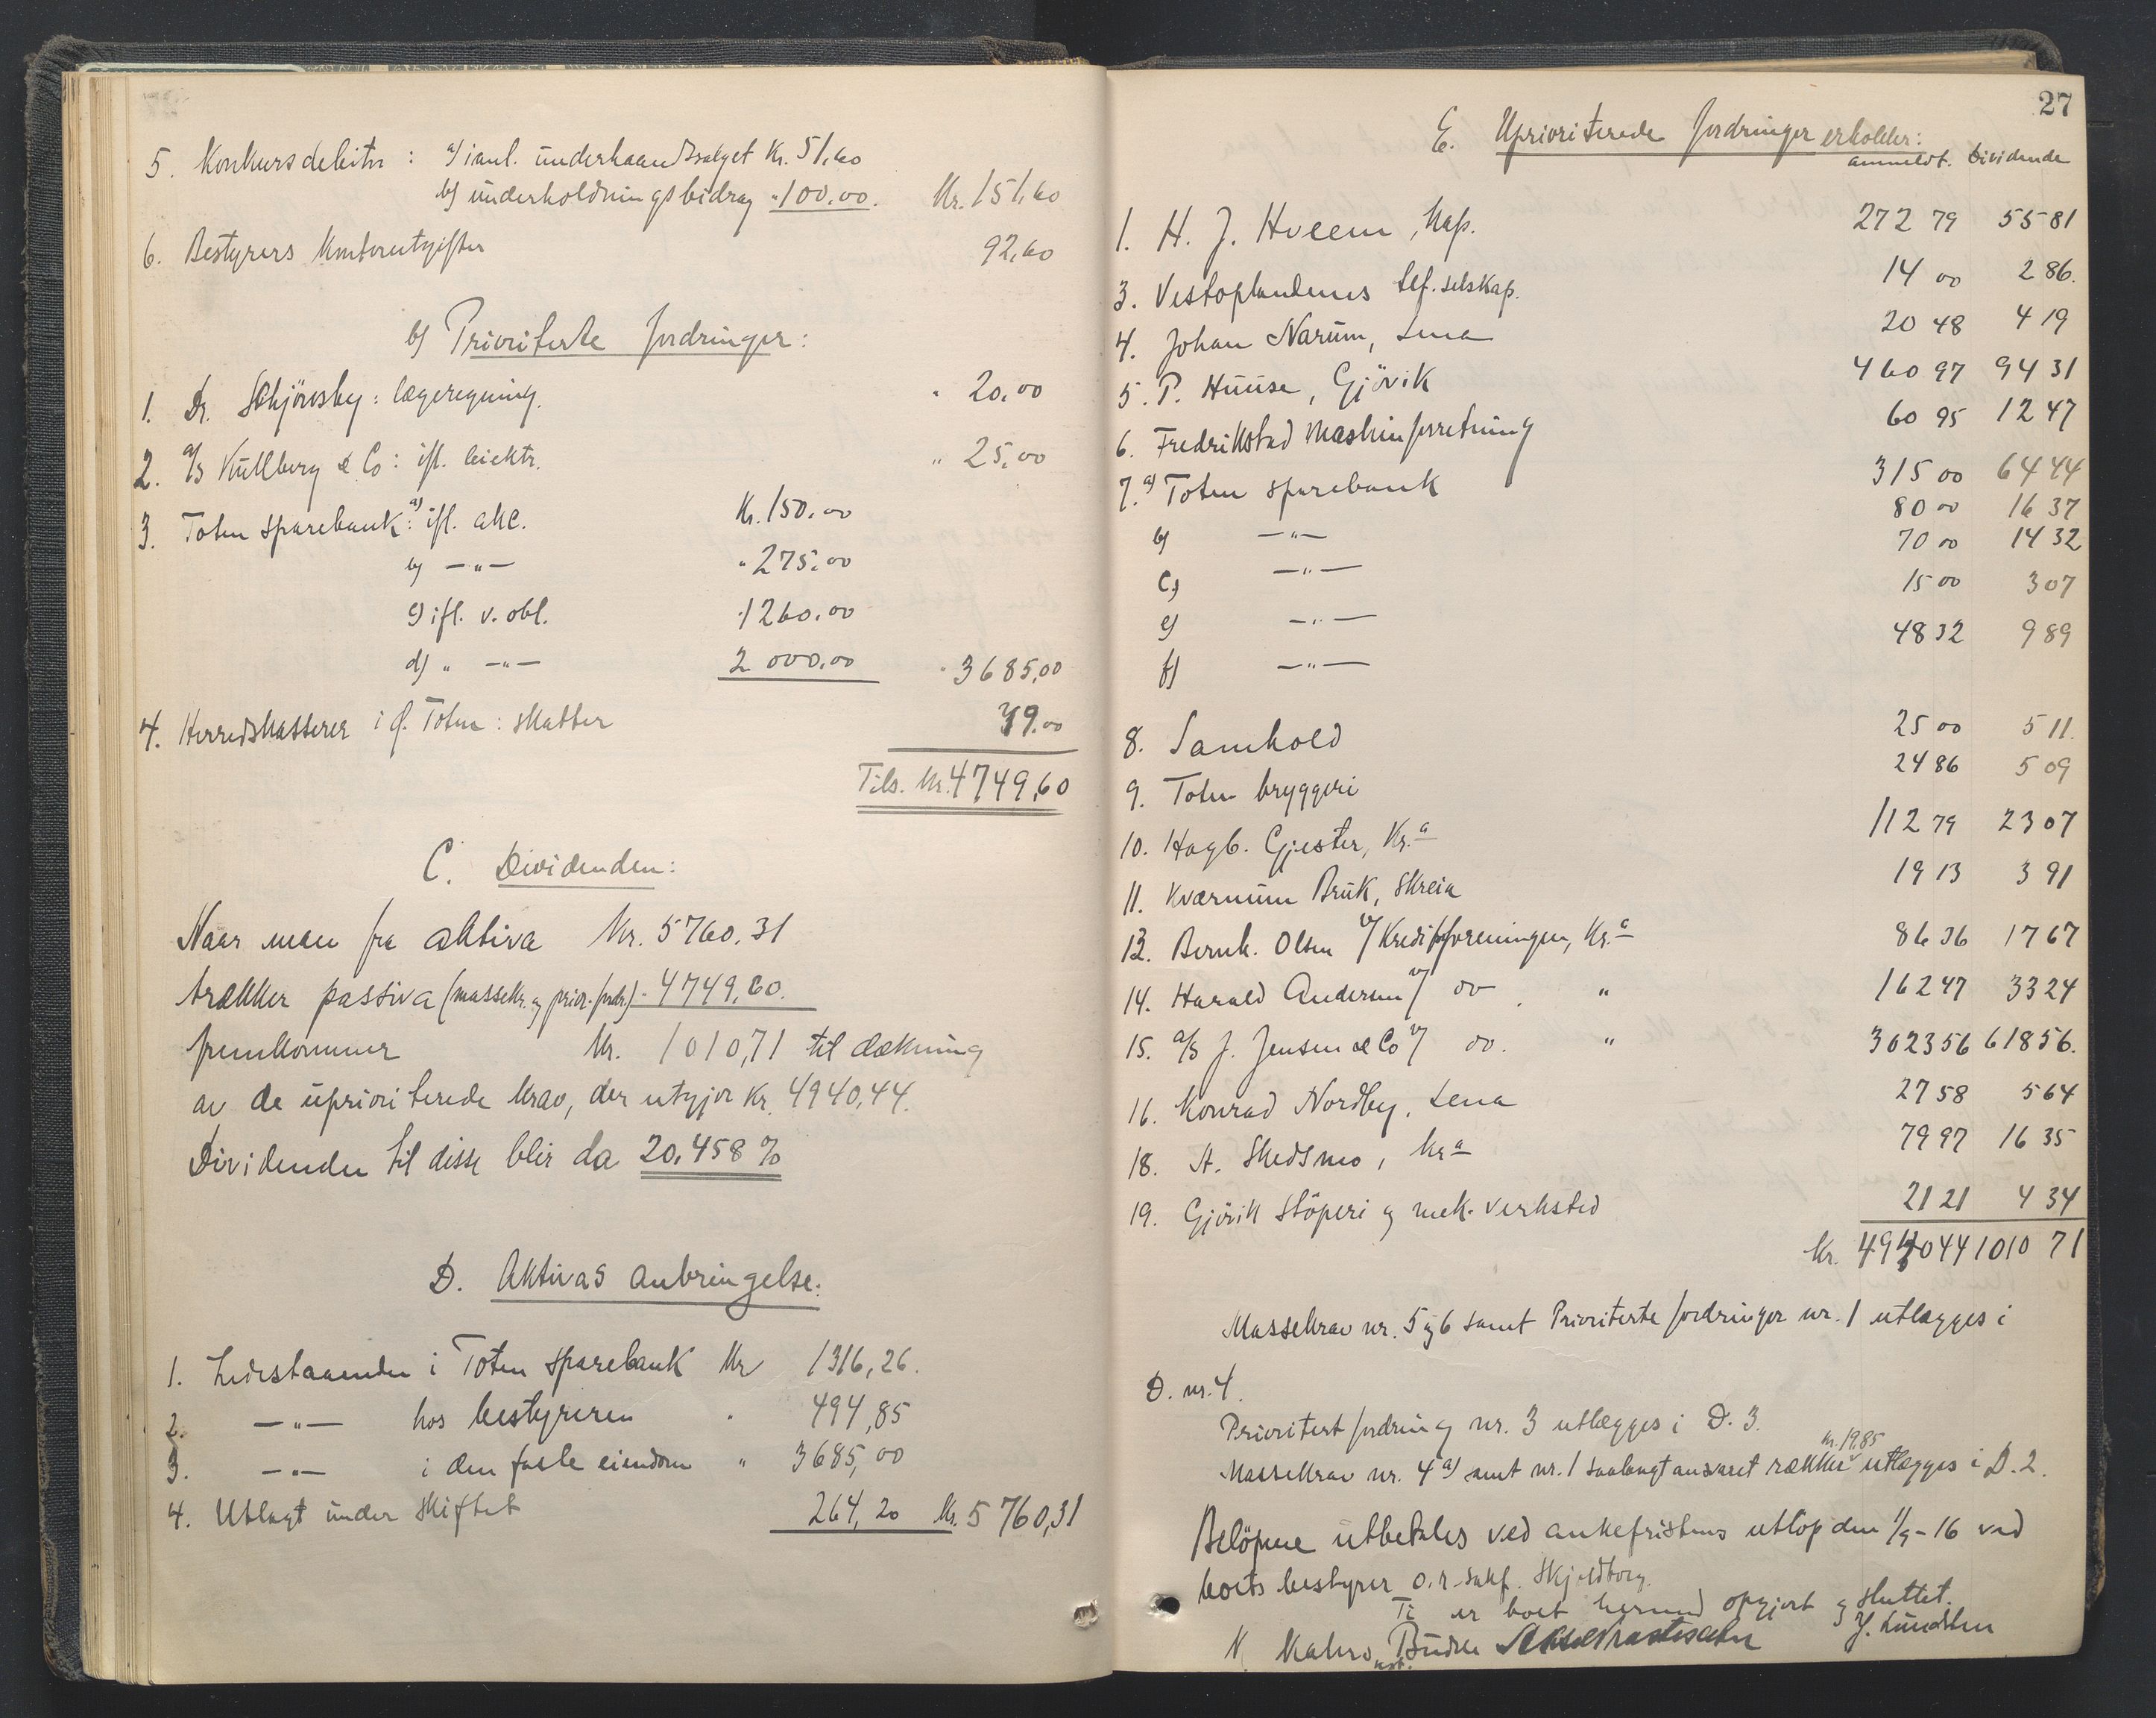 5. Konkursdebitor: a) ianl. underhaandssalget Kr. 51,60
b) underholdningsbidrag " 100,00. Kr. 151,60
6. Bestyrers kontorutgifter 92,60
b) Prioriterte fordringer:
1. Dr. Schjörsby: lægeregning. " 20,00
2. A/S Kullberg & Co: ifl. leiektr. " 25,00
3. Toten sparebank: a) ifl. akc. Kr. 150,00
b) —"— " 275,00
c) ifl. v. obl. " 1260,00
d) " —"— 2 000,00 " 3685,00
4. Herredskasserer i Ø. Toten: skatter 79,00
Tils. kr. 4749,60
C. Dividenden:
Naar man fra aktiva Kr. 5760,31
trækker passiva (massekr. og prior. fordr.) - 4749,60.
fremkommer Kr. 1010,71 til dækning
av de uprioriterede krav, der utgjør Kr. 4940,44.
Dividenden til disse blir da 20,458 %
D. Aktivas anbringelse:
1. Indestaaende i Toten sparebank Kr 1316,26.
2. —"— hos bestyreren " 494,85
3. —"— i den faste eiendom " 3685,00
4. Utlagt under skiftet 264,20 Kr. 5760,31
27
E. Uprioriterede fordringer erholder:
anmeldt. Dividende
1. H. J. Hveem, Kap. 272 79 55 81
3. Vestoplandenes tlf. selskap. 14 00 2 86.
4. Johan Narum, Lena 20 48 4 19
5. P. Huuse, Gjövik 460 97 94 31
6. Fredrikstad Maskinforretning 60 95 12 47
7. a) Toten sparebank 315 00 64 44
b) —"— 80 00 16 37
c) —"— 70 00 14 32
e) —"— 15 00 3 07
f) —"— 48 32 9 89
8. Samhold 25 00 5 11.
9. Toten bryggeri 24 86 5 09
10. Hagb. Gjester, Kr.a 112 79 23 07
11. Kværnum Bruk, Skreia 19 13 3 91
13. Bernh. Olsen v/ Kreditforeningen, Kr.a 86 36 17 67
14. Harald Andersen v/ do " 162 47 33 24
15. A/S J. Jensen & Co v/ do. " 3023 56 618 56.
16. Konrad Nordby, Lena 27 58 5 64
18. A. Skedsmo, Kra 79 97 16 35
19. Gjövik Stöperi og mek. verksted 21 21 4 34
Kr. 4940 44 1010 71
Massekrav nr. 5 og 6 samt Prioriterte fordringer nr. 1 utlægges i
D. nr. 4.
Prioritert fordring nr. 3 utlægges i D. 3.
kr. 19,85
Massekrav nr. 4 a) samt nr. 1 saalangt ansvaret rækker utlægges i D. 2.
Belöpene utbetales ved ankefristens utlöp den 1/9-16 ved
boets bestyrer o.r.sakf. Skjeldborg.
er boet hermed opgjort og sluttet.